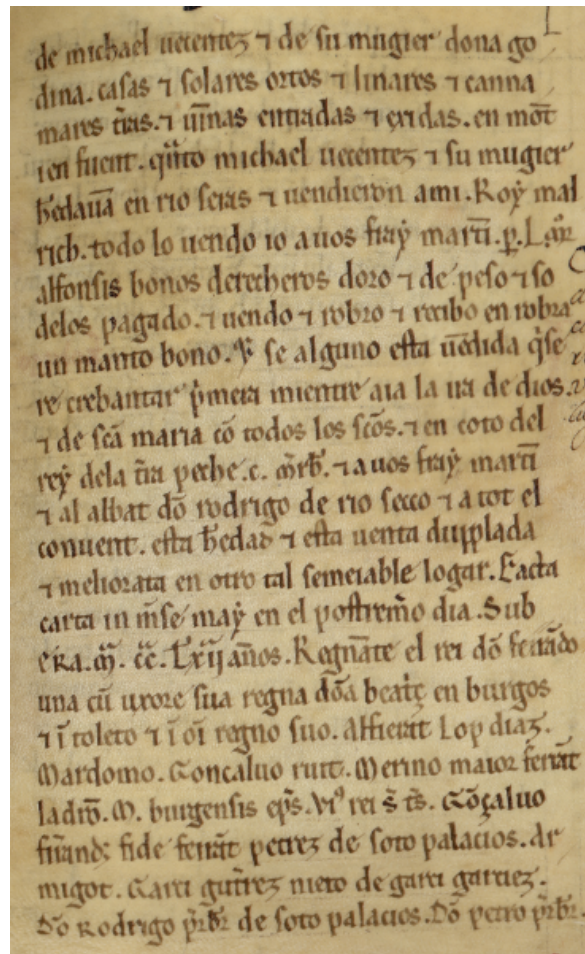 de michael uecentez ⁊ de su mugier dona go
dina. casas ⁊ solares ortos ⁊ linares ⁊ canna
mares t̃ras. ⁊ uin̄as entradas ⁊ exidas. en mõt
⁊ en fuent. qⁱnto michael uecentez ⁊ su mugier
h̃edauã en rio seras ⁊ uendieron ami. Roẏ mal
rich. todo lo uendo io auos fraẏ martĩ. p̱.
alfonsis bonos derecheros doro ⁊ de peso ⁊ so
delos pagado. ⁊ uendo ⁊ robro ⁊ recibo en robra
un manto bono. Ẏ se alguno esta uẽdida qⁱse
re crebantar pⁱmera mientre aia la ira de dios.
⁊ de sc̃a maria cõ todos los sc̃os. ⁊ en coto del
reẏ dela t̃ra peche .c. mr̃b̃. ⁊ auos fraẏ martĩ
⁊ al abbat dõ rodrigo de rio secco ⁊ a tot el
conuent. esta h̃edad ⁊ esta uenta dupplada
⁊ meliorata en otro tal semeiable logar. Facta
carta in m̃se maẏ en el postrem̃o dia. Sub
eRa. M̃. C̃C̃. Lxij an̄os. Regnãte el rei dõ ferãdo
una cũ uxore sua regna dõa beatⁱç en burgos
⁊ ĩ toleto ⁊ ĩ oĩ regno suo. Alfierat Lop diaz.
Mardomo. Goncaluo ruit. Merino maior ferrãt
ladrõ. M. burgensis ep̃s.
Gõçaluo
fñandz fide ferrãt petrez de soto palacios. Ar
migot. Garci gut̃rez nieto de garci garciez.
Dõ Rodrigo p̃rbr̃ de soto palacios. Dõ petro p̃rbr̃.